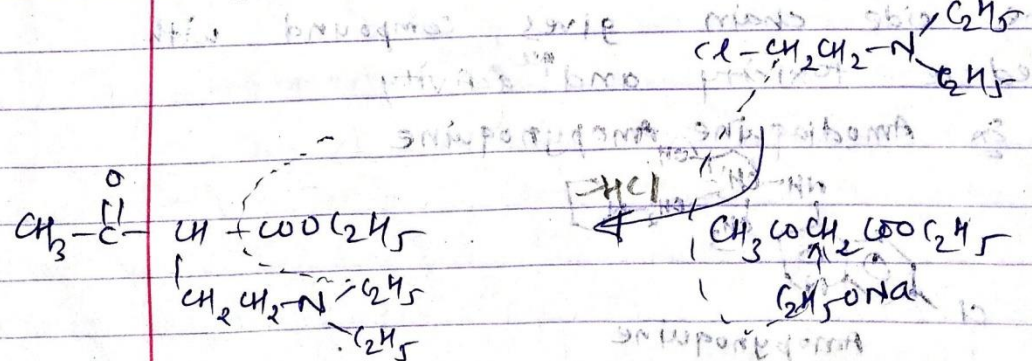 Cl-CH2CH2-N
C2H5
C2H5
-HCl
O
CH3-C-CH-COOC2H5
CH2CH2-N
C2H5
C2H5
CH3COCH2COOC2H5
C2H5ONa